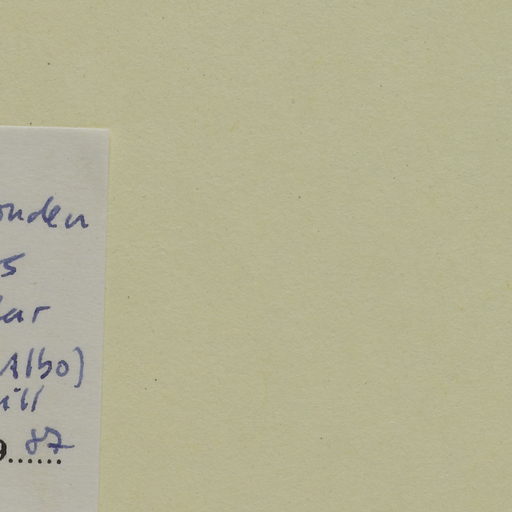 onden
s
ar
Albo)
ill
9 87